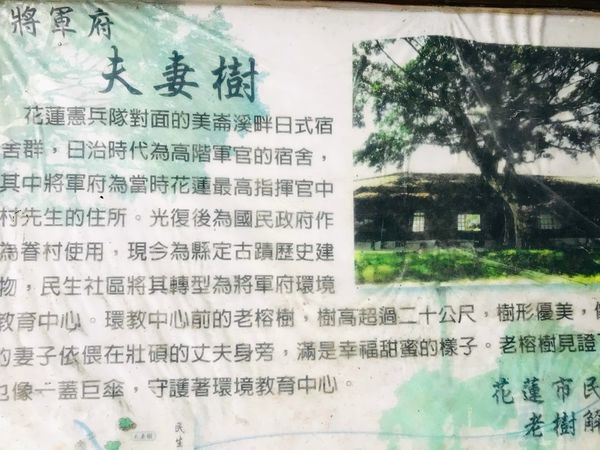 將軍府
夫妻樹
花蓮憲兵隊對面的美崙溪畔日式宿
舍群，日治時代為高階軍官的宿舍，
其中將軍府為當時花蓮最高指揮官中
村先生的住所。光復後為國民政府作
為眷村使用，現今為縣定古蹟歷史建
物，民生社區將其轉型為將軍府環境
教育中心。環教中心前的老榕樹，樹高超過二十公尺，樹形優美，
的妻子依偎在壯碩的丈夫身旁，滿是幸福甜蜜的樣子。老榕樹見證
也像一蓋巨傘，守護著環境教育中心。
花蓮市民
老樹解
夫妻樹
民生